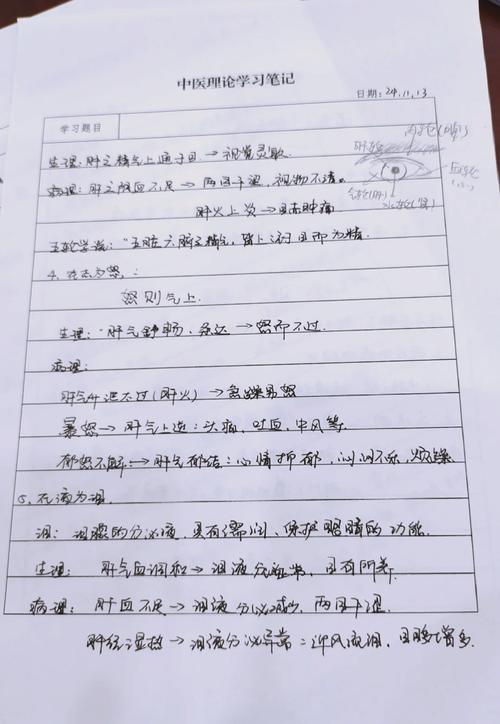 中医理论学习笔记
日期：24.11.13
学习题目
生理：肝之精气上通于目→视觉灵敏
病理：肝之阴血不足→两目干涩，视物不清。
肝火上炎→目赤肿痛
五轮学说："五脏六腑之精气，皆上注于目而为精
4、在志为怒：
怒则气上.
生理：肝气舒畅、条达→怒而不过.
病理：
肝气升泄不过(肝火)→急躁易怒
暴怒→肝气上逆：头痛，吐血，中风等
郁怒不解→肝气郁结：心情抑郁，闷闷不乐，烦躁
5、在液为泪.
泪：泪腺的分泌液，具有濡润、保护眼睛的功能.
生理：肝气血调和→泪液分泌正常，目有所养
病理：肝血不足→泪液分泌减少，两目干涩.
肝经湿热→泪液分泌异常：迎风流泪，目眵增多.